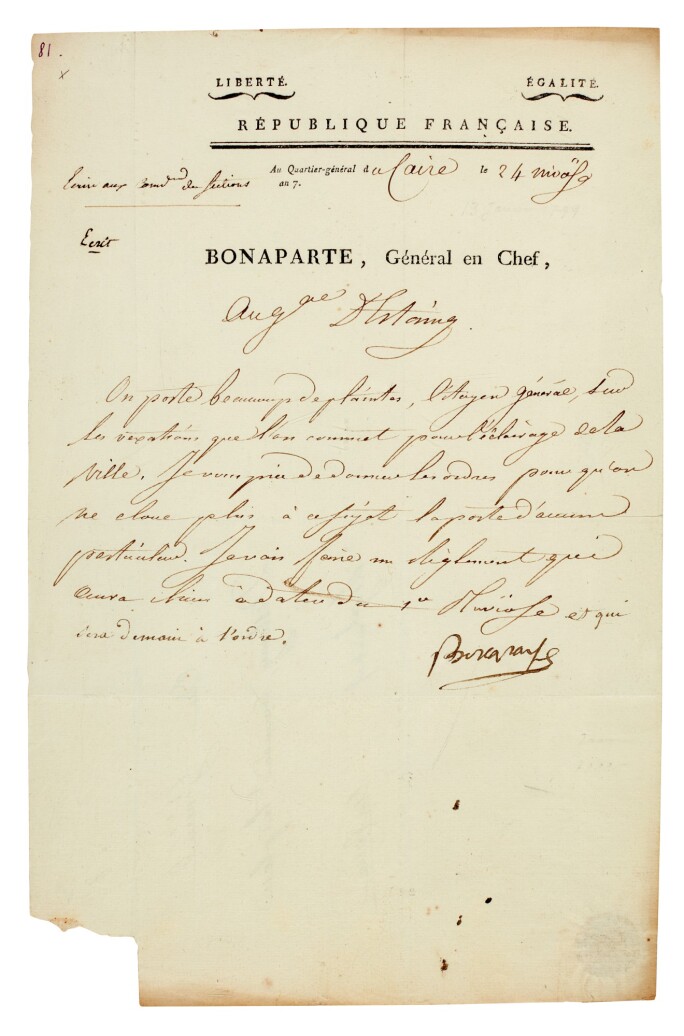 81.
x
LIBERTÉ. ÉGALITÉ.
RÉPUBLIQUE FRANÇAISE.
Ecrire aux comd.ns des Sections
Au Quartier-général du Caire le 24 nivôse
an 7.
Ecrit
BONAPARTE, Général en Chef,
Au g.al D'Estaing.
On porte beaucoup de plaintes, Citoyen général, sur
les vexations que l'on commet pour l'éclairage de la
Ville. Je vous prie de donner les ordres pour qu'on
ne cloue plus à ce sujet la porte d'aucun
particulier. Je vais faire un Règlement qui
aura lieu à dater du 1.er Pluviose et qui
sera demain à l'ordre.
Bonaparte